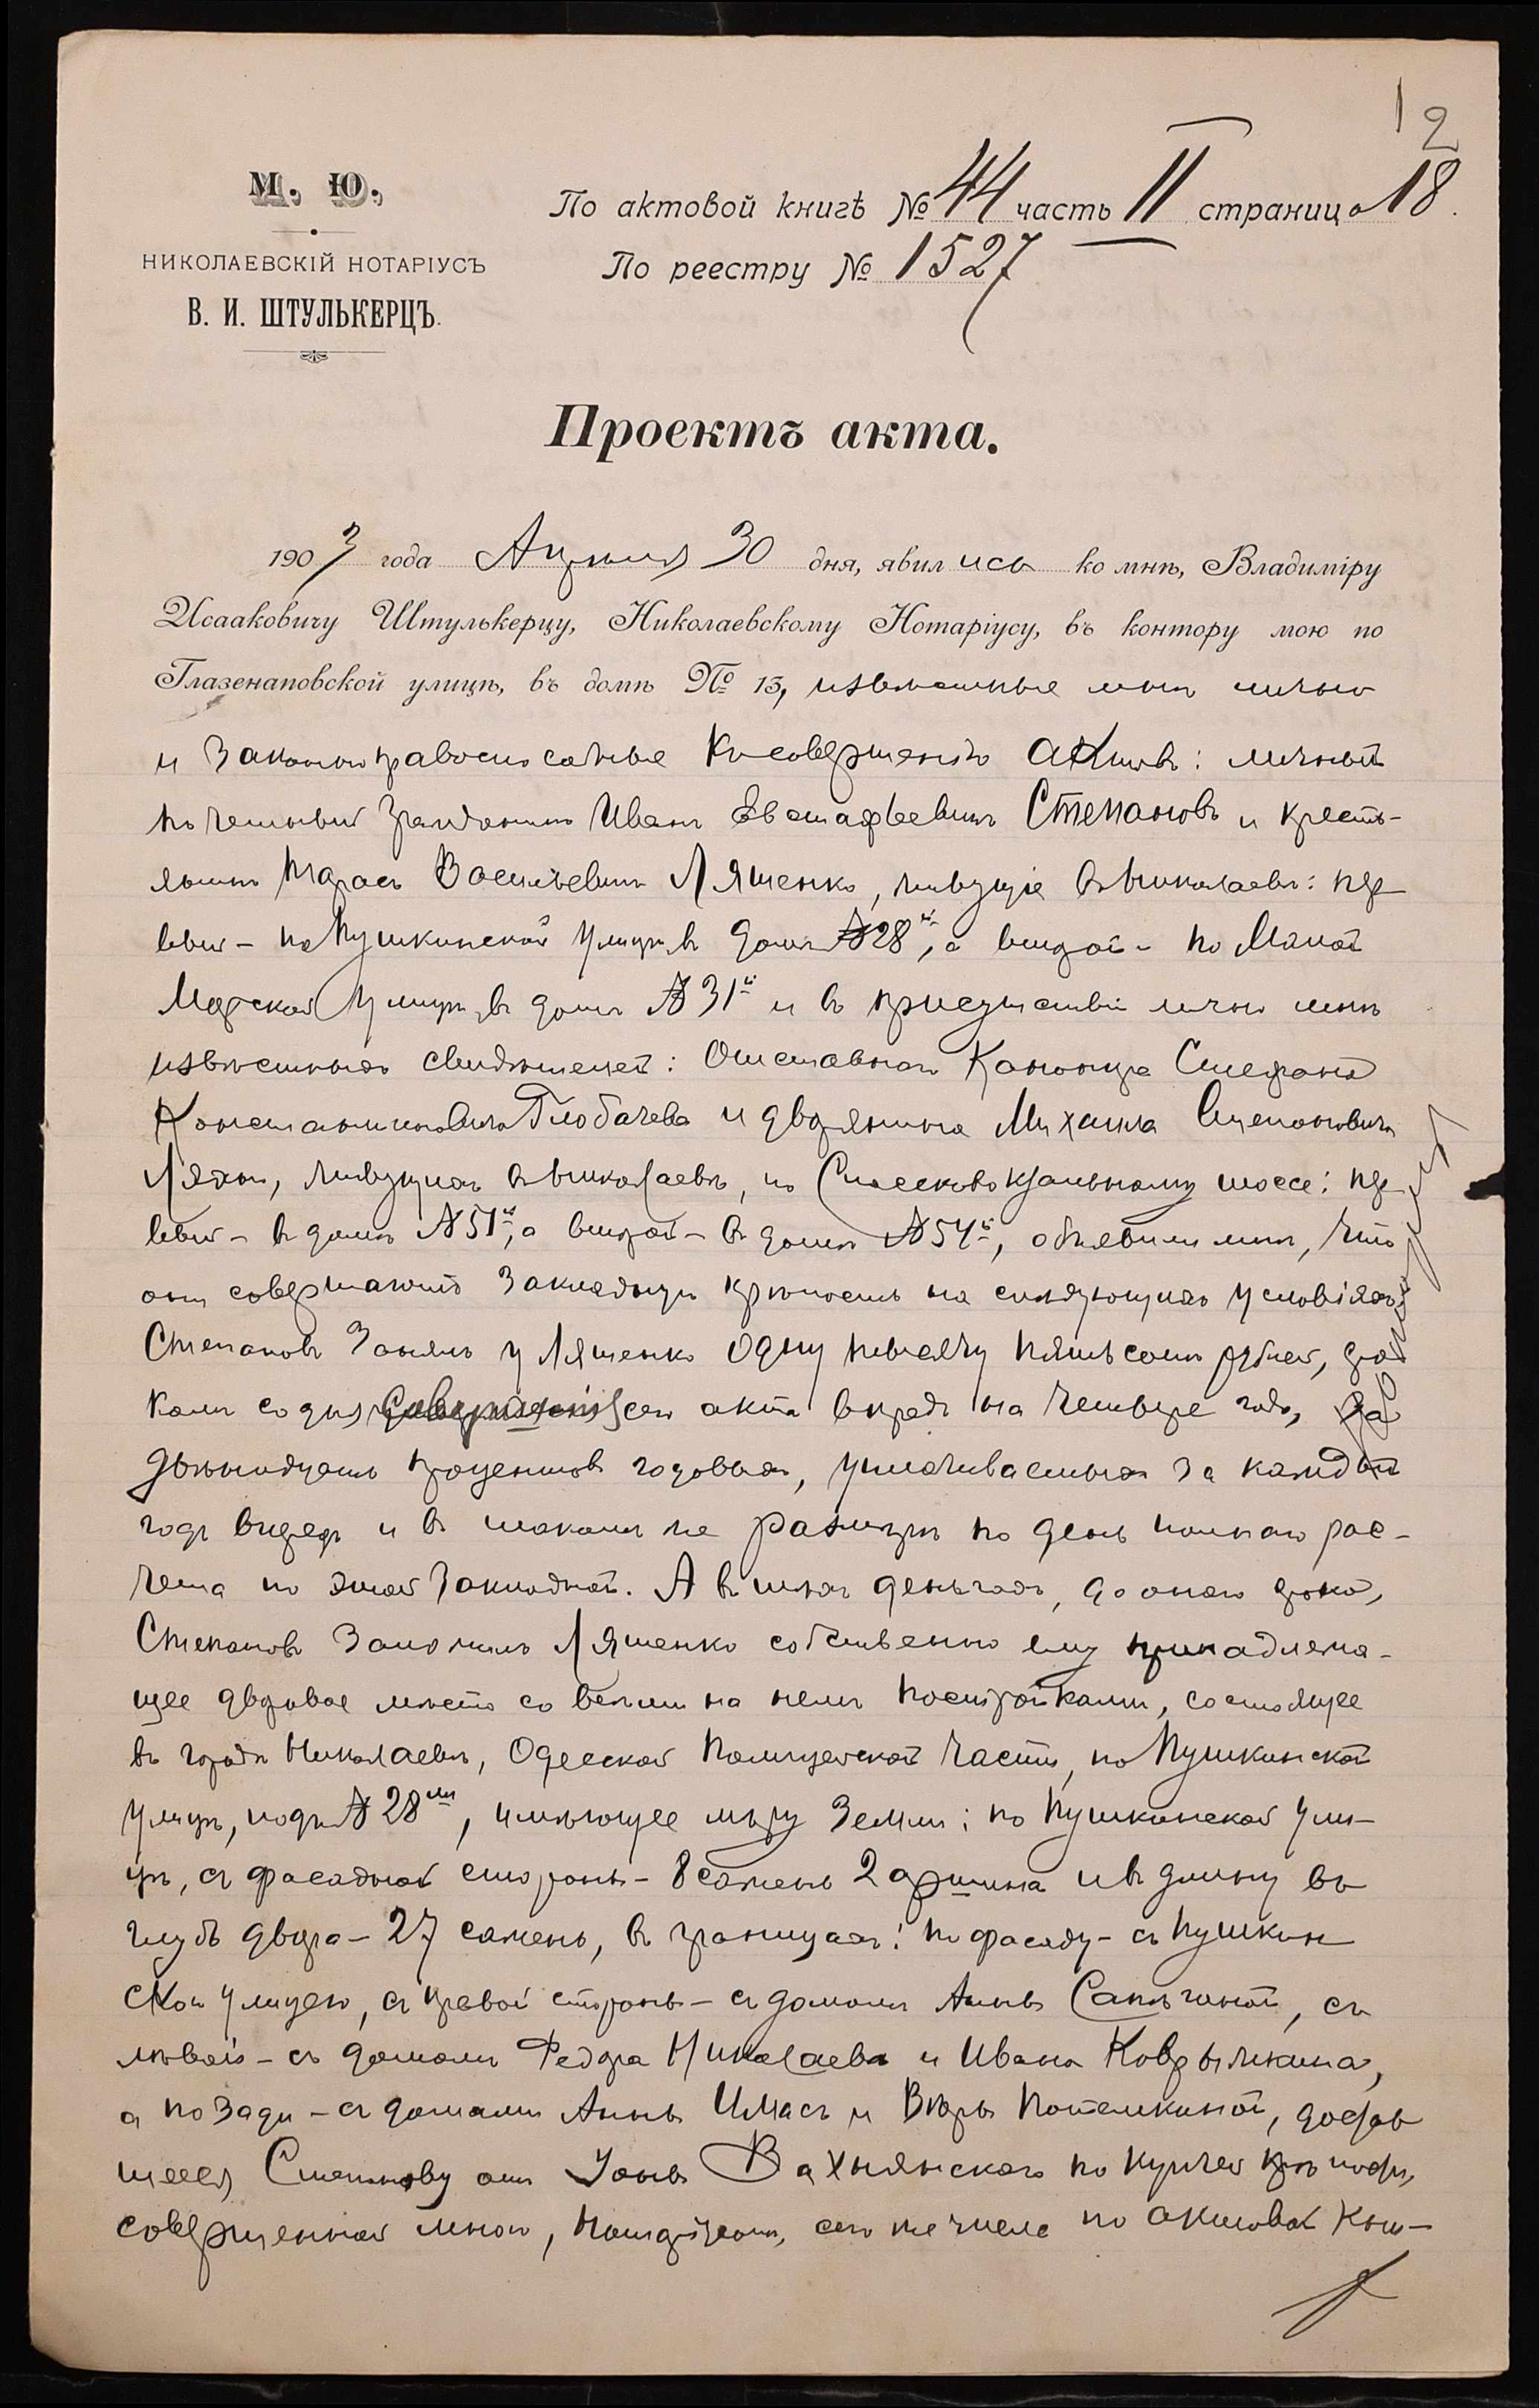 12
М. Ю.
НИКОЛАЕВСКІЙ НОТАРІУСЪ
В. И. ШТУЛЬКЕРЦЪ.
По актовой книгѣ № 44 часть II страница 18.
По реестру № 1527
Проектъ акта.
1903 года Апрѣля 30 дня, явились ко мнѣ, Владиміру
Исааковичу Штулькерцу, Николаевскому Нотаріусу, въ контору мою по
Глазенаповской улицѣ, въ домѣ № 13, извѣстные мнѣ лично
и законноправоспособные къ совершенію актовъ: личный
почетный гражданинъ Иванъ Евстафьевичъ Степановъ и кресть-
янинъ Тарасъ Васильевичъ Ляшенко, живущіе въ Николаевѣ: пер
вый - по Пушкинской улицѣ, въ домѣ № 28й, а второй - по Малой
Морской улицѣ, въ домѣ № 31й и въ присутствіи лично мнѣ
извѣстныхъ свидѣтелей: Отставного Стефана
Константиновича Глобачева и дворянина Михаила Степановича
живущихъ въ Николаевѣ, по Спасскому шоссе: пер
вый - въ домѣ № 51й, а второй - въ домѣ № 54й, объявили мнѣ, что
они совершаютъ закладную крѣпость на слѣдующихъ условіяхъ:
Степановъ занялъ у Ляшенко одну тысячу пятьсотъ рублей, сро
комъ со дня совершенія сего акта впредь на четыре года, за
двѣнадцать процентовъ годовыхъ, уплачиваемыхъ за каждый
годъ впередъ и въ такомъ же размѣрѣ по день полнаго рас-
чета по этой закладной. А въ тѣхъ деньгахъ, до онаго срока,
Степановъ заложилъ Ляшенко собственно ему принадлежа-
щее дворовое мѣсто со всѣми на немъ постройками, состоящее
въ городѣ Николаевѣ, Одесской Полицейской части, по Пушкинской
улицѣ, подъ № 28мъ, имѣющее мѣру земли: по Пушкинской ули-
цѣ, съ фасадной стороны - 8 сажень 2 аршина и въ длину въ
глубь двора - 27 сажень, въ границахъ: по фасаду - съ Пушкин
ской улицею, съ правой стороны - съ домомъ Анны Сапѣгиной, съ
лѣвой - съ домами Федора Николаева и Ивана Коврыжкина,
а позади - съ домами Анны Имасъ и Вѣры Потемкиной, достав
шееся Степанову отъ Вахнянскаго по купчей крѣпости,
совершенной мною, Нотаріусомъ, сего же числа по актовой кни-